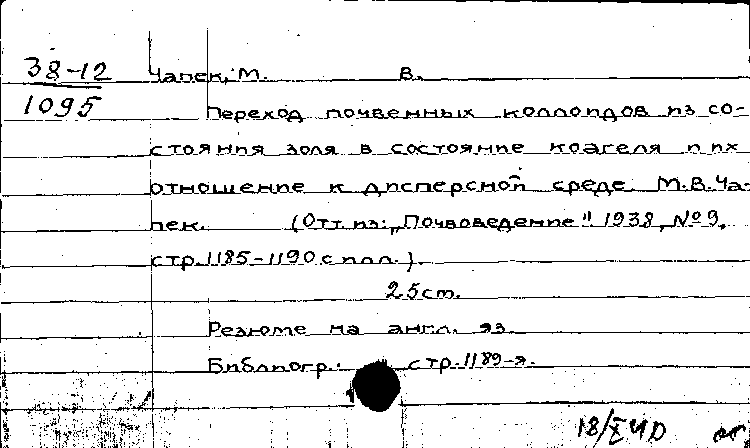 38-12 Чапек, М. В.
1095 Переход почвенных коллоидов из со-
стояния золя в состояние коагеля и их
отношение к дисперсной среде. М.В.Ча-
пек. (Отт. из: „Почвоведение" 1938, №9,
стр. 1185-1190 с илл.).
25см.
Резюме на англ. яз.
Библиогр.: стр. 1189-я.